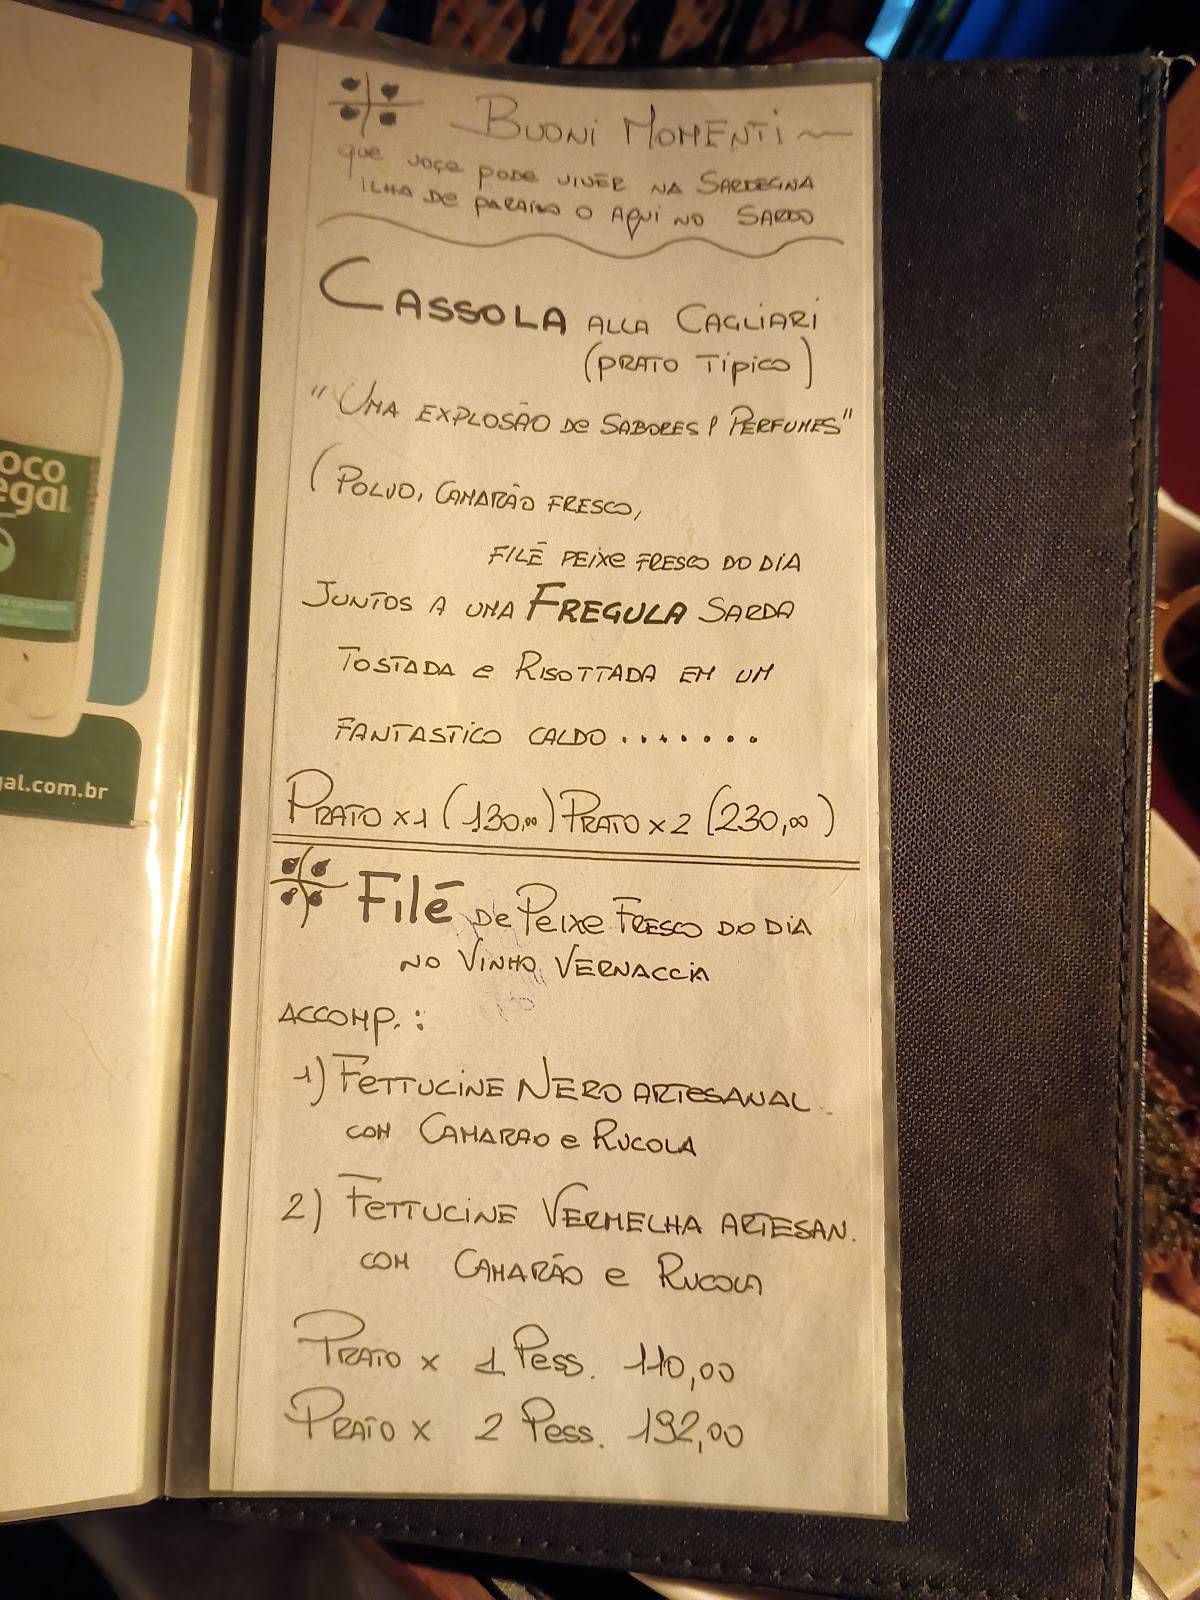 oco
egal
gal.com.br
BUONI MOMENTI
que voçe pode viver na SARDEGNA
ilha de paraiso o aqui no SARDO
CASSOLA ALLA CAGLIARI
(PRATO Tipico)
"UMA EXPLOSÃO DE SABORES / PERFUMES"
(POLVO, CAMARÃO FRESCO,
FILĒ PEIXE FRESCO DO DIA
JUNTOS A UMA FREGULA SARDA
TOSTADA e RISOTTADA EM UM
FANTASTICO CALDO ........
PRATO x1 (130,00) PRATO x 2 (230,00)
FilĒ De Peixe Fresco DO DIA
NO VINHO VERNACCIA
ACCOMP. :
1) FETTUCINE NERO ARTESANAL
COM CAMARAO e RUCOLA
2) FETTUCINE VERMELHA ARTESAN.
COM CAMARÃO e RUCOLA
PRATO x 1 Pess. 110,00
PRATO x 2 Pess. 192,00